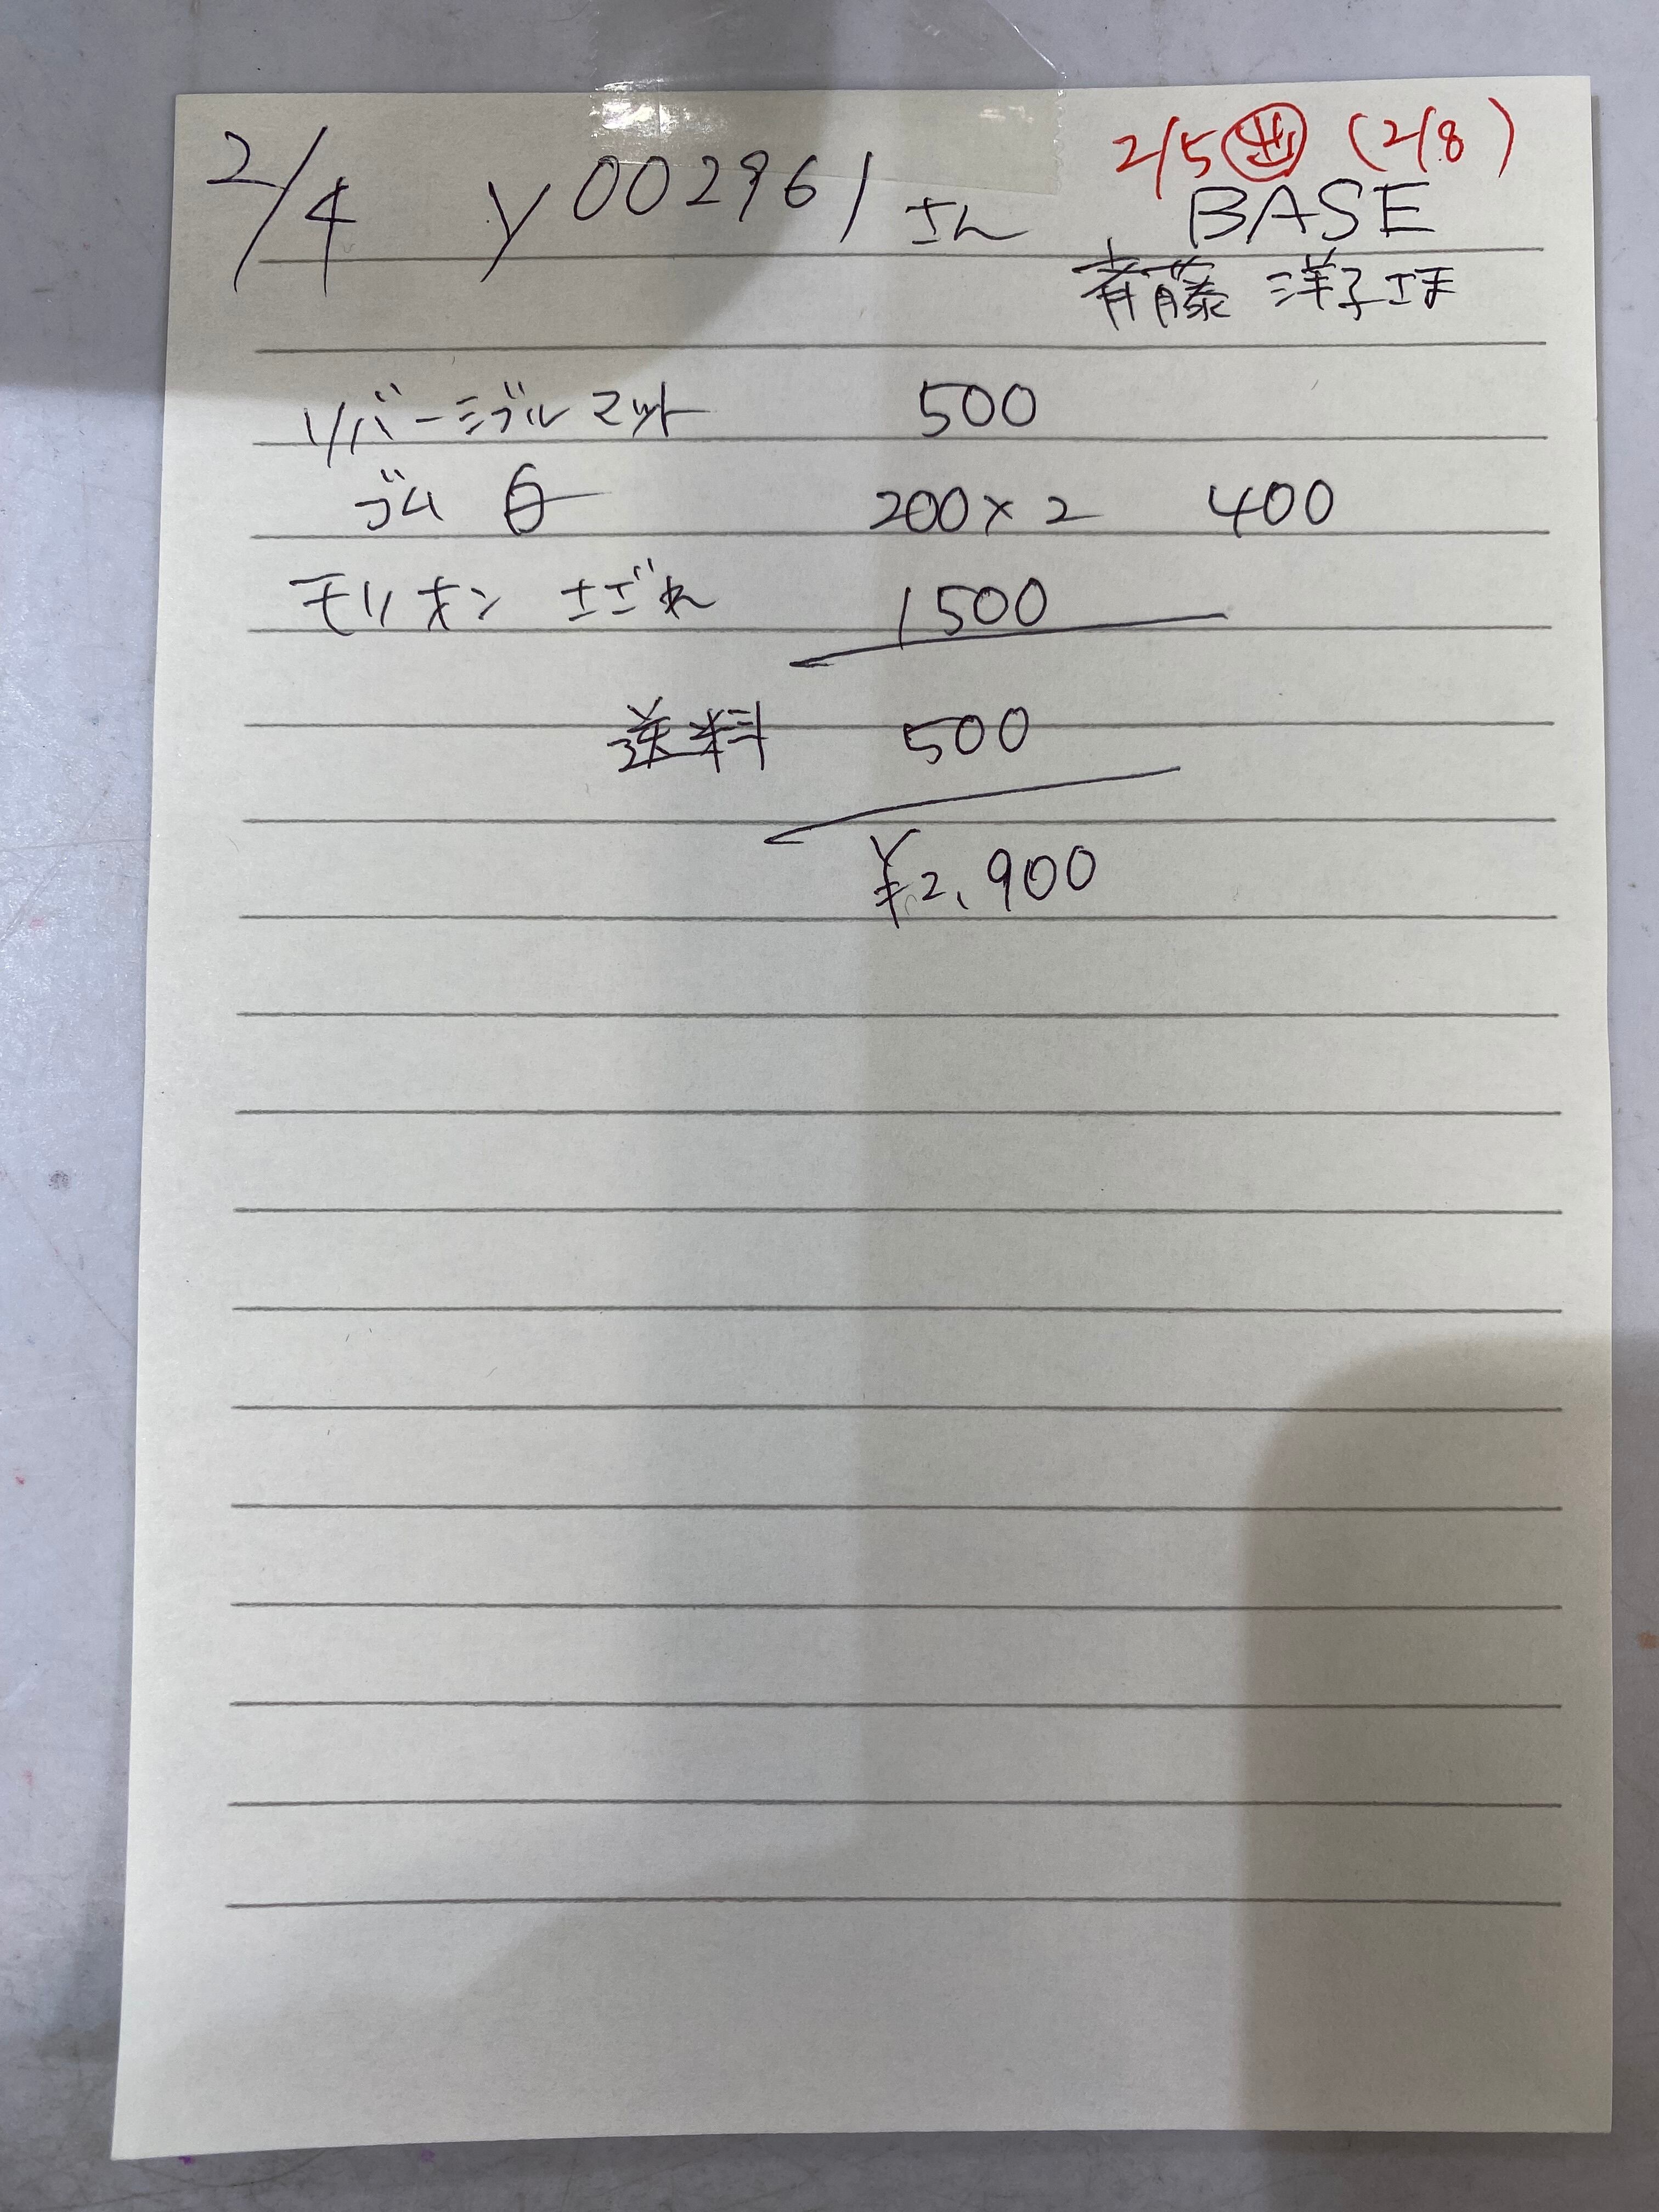 2/5 出 (2/8)
2/4 y002961 さん BASE
斉藤 洋子さま
リバーシブルマット 500
ゴム 白 200×2 400
モリオン さざれ 1500
送料 500
¥2,900